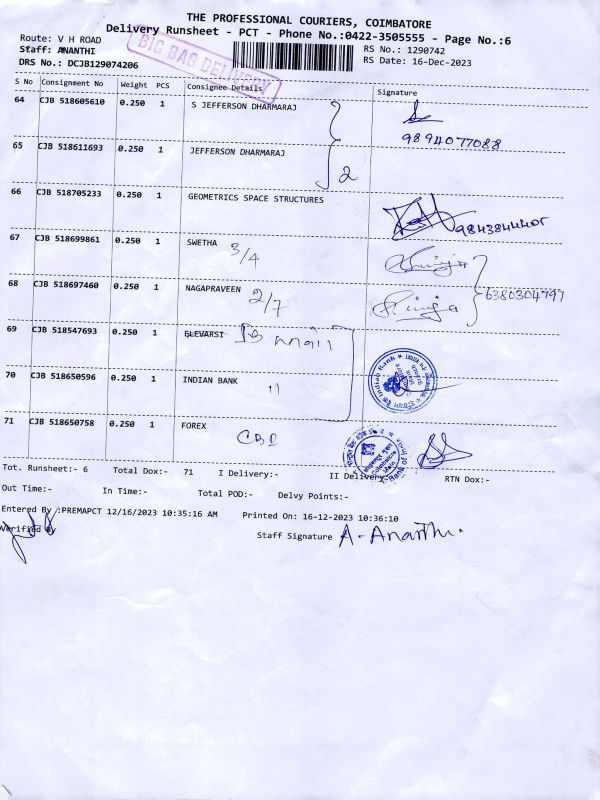 THE PROFESSIONAL COURIERS, COIMBATORE
Delivery Runsheet - PCT - Phone No.:0422-3505555 - Page No.:6
Route: V H ROAD
RS No.: 1290742
Staff: ANANTHI
RS Date: 16-Dec-2023
DRS No.: DCJB129074206
BIG BAG DELIVERY
S No Consignment No Weight PCS Consignee Details Signature
64 CJB 518605610 0.250 1 S JEFFERSON DHARMARAJ
9894077088
65 CJB 518611693 0.250 1 JEFFERSON DHARMARAJ
2
66 CJB 518705233 0.250 1 GEOMETRICS SPACE STRUCTURES
67 CJB 518699861 0.250 1 SWETHA 3/4
68 CJB 518697460 0.250 1 NAGAPRAVEEN 2/7
6380304797
69 CJB 518547693 0.250 1 ELEVARSI
70 CJB 518650596 0.250 1 INDIAN BANK 11
71 CJB 518650758 0.250 1 FOREX
Tot. Runsheet:- 6 Total Dox:- 71 I Delivery:- II Delivery:- RTN Dox:-
Out Time:- In Time:- Total POD:- Delvy Points:-
Entered By :PREMAPCT 12/16/2023 10:35:16 AM Printed On: 16-12-2023 10:36:10
Verified By
Staff Signature A. Ananthi.